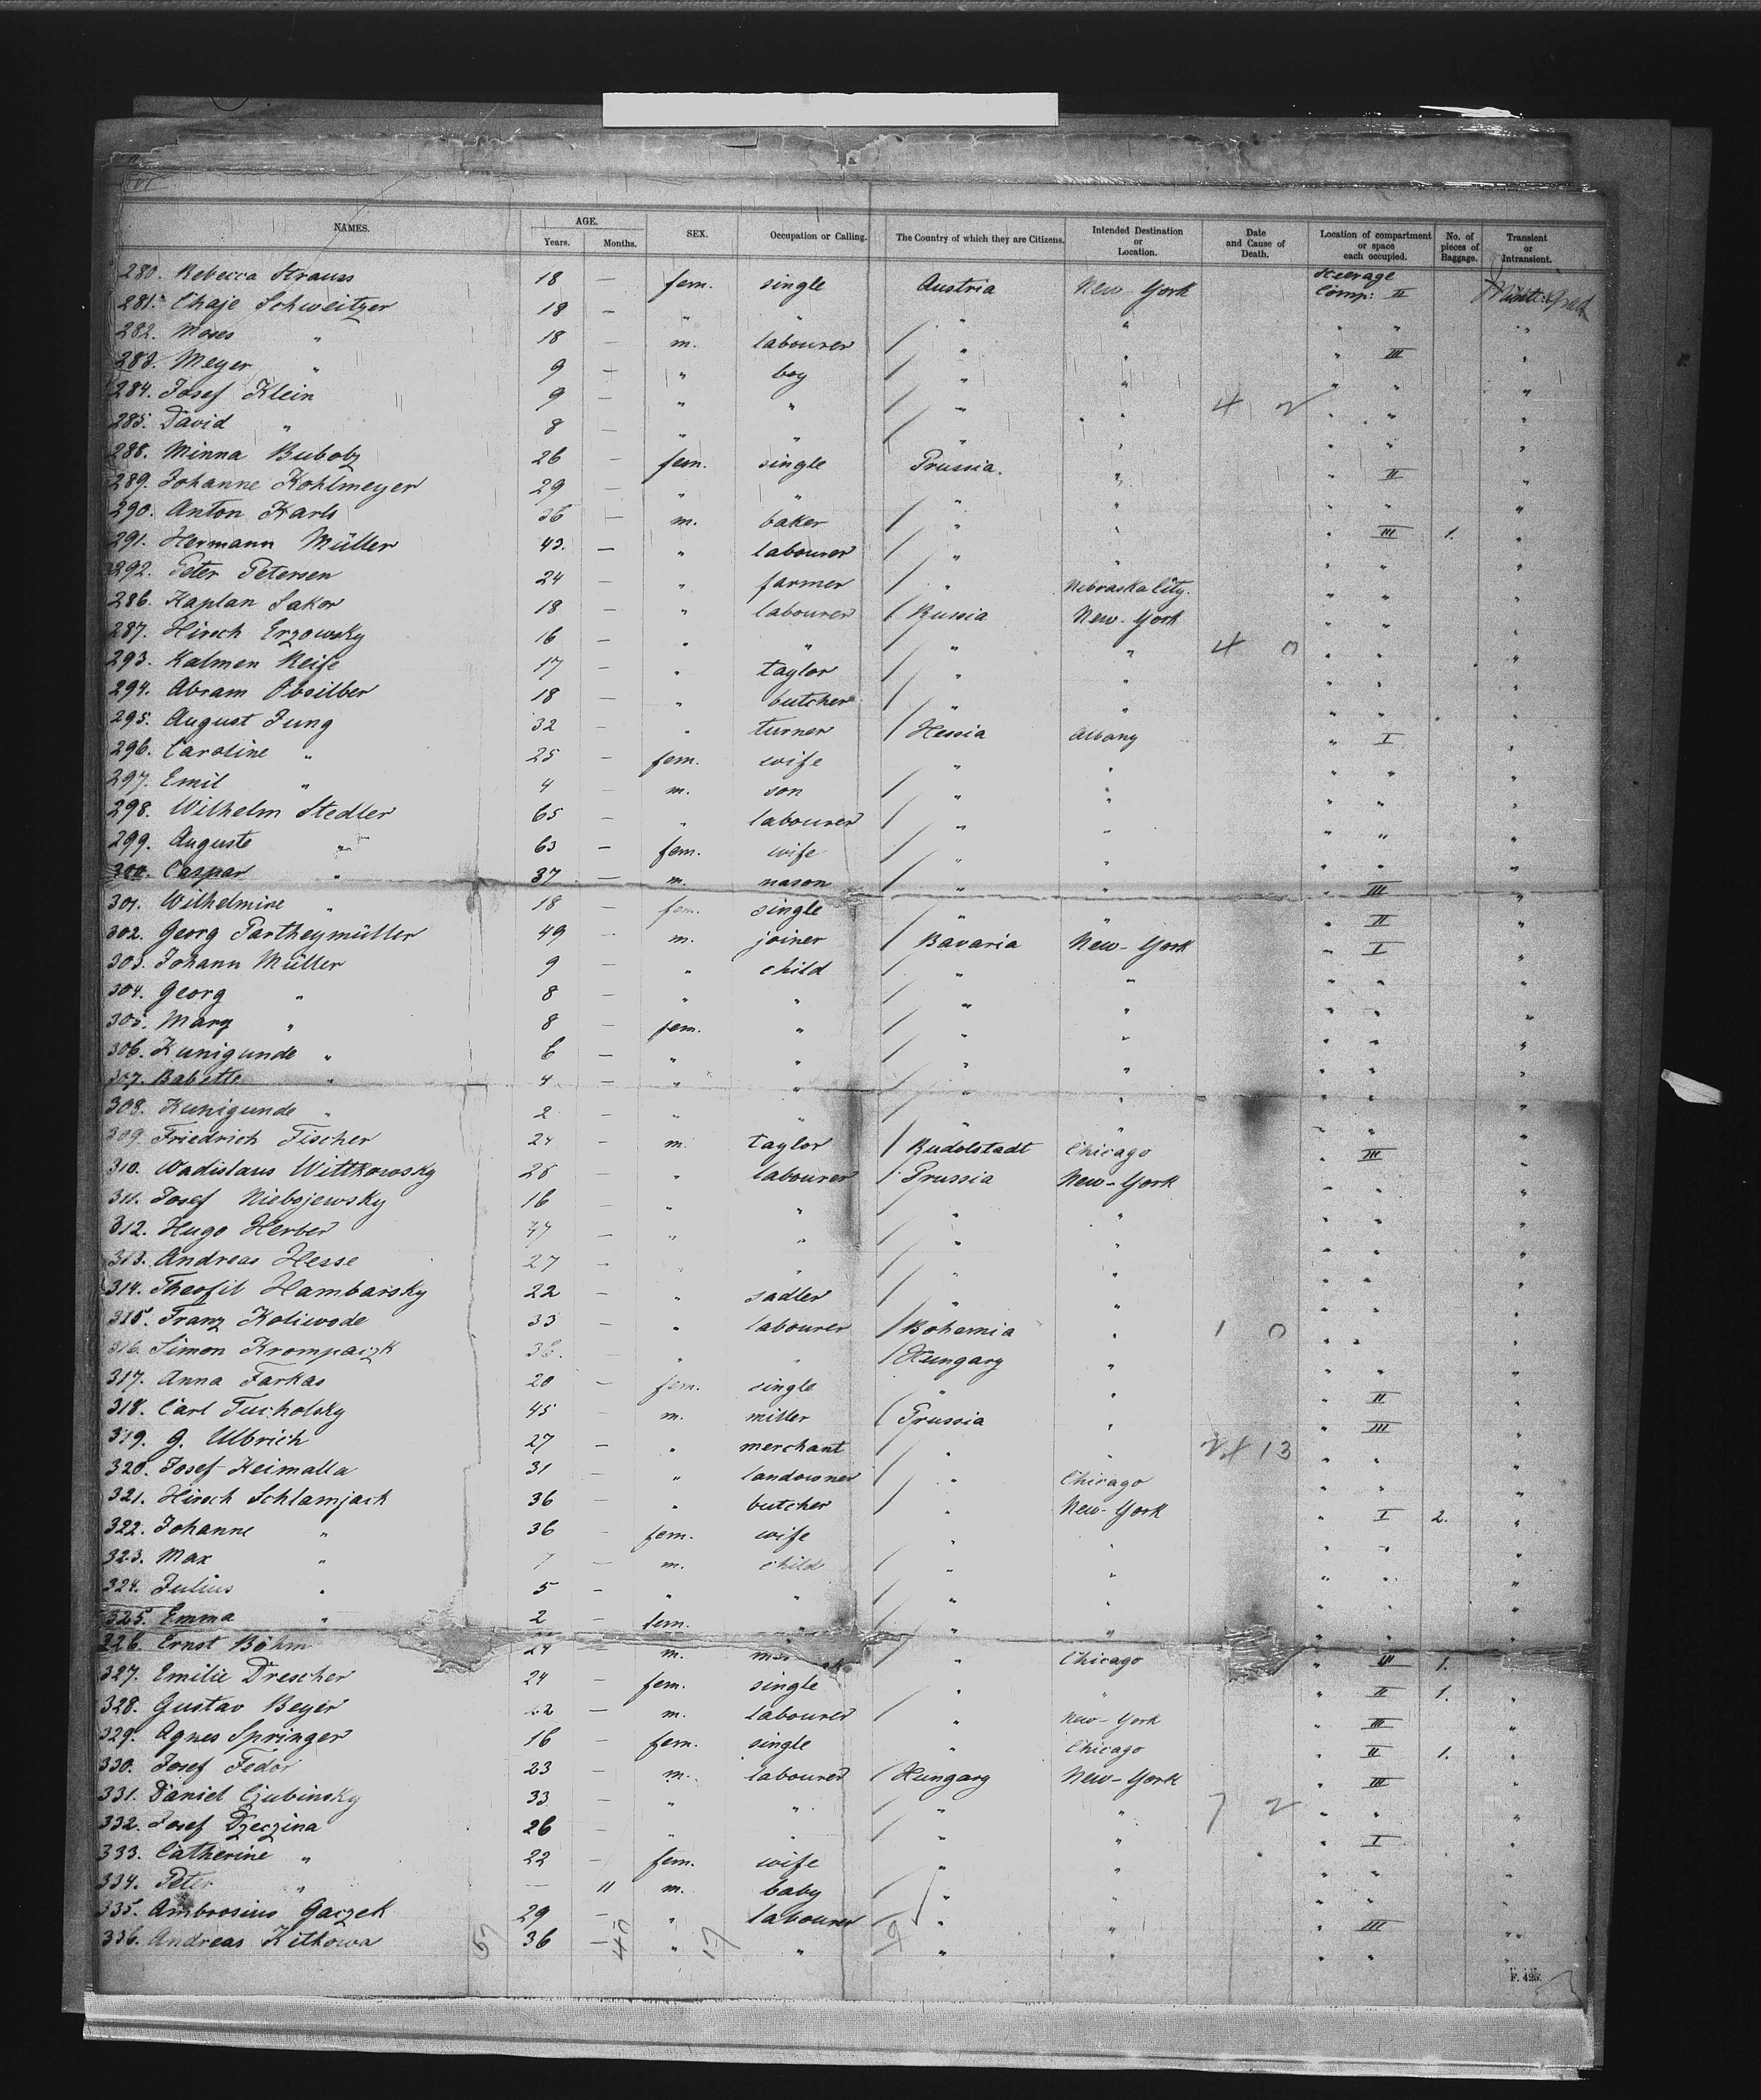 NAMES. AGE. Years. Months. SEX. Occupation or Calling. The Country of which they are Citizens. Intended Destination or Location. Date and Cause of Death. Location of compartment or space each occupied. No. of pieces of Baggage. Transient or Intransient.
280. Rebecca Strauss 18 — fem. single Austria New York Steerage Comp: II
281. Chaje Schweitzer 18 — " " " " " " "
282. Moses " 18 — m. labourer / " " " III "
283. Meyer " 9 — " boy / " " " " "
284. Josef Klein 9 — " " / " " 4 2 " " "
285. David " 8 — " " / " " " " "
288. Minna Bubolz 26 — fem. single Prussia. " " II "
289. Johanne Kohlmeyer 29 — " " " " " " "
290. Anton Karls 36 — m. baker / " " " III 1. "
291. Hermann Müller 43. — " labourer / " " " " "
292. Peter Petersen 24 — " farmer / " Nebraska City. " " "
286. Kaplan Sakor 18 — " labourer / Russia New-York " " "
287. Hirsch Erzowsky 16 — " " / " " 4 0 " " "
293. Kalmen Reife 17 — " taylor / " " " " "
294. Abram Obsilber 18 — " butcher / " " " " "
295. August Jung 32 — " turner / Hessia Albany " I "
296. Caroline " 25 — fem. wife " " " " "
297. Emil " 4 — m. son / " " " " "
298. Wilhelm Stedler 65 — " labourer / " " " " "
299. Auguste " 63 — fem. wife / " " " " "
300. Caspar " 37 — m. mason / " " " III "
301. Wilhelmine " 18 — fem. single / " " " II "
302. Georg Partheymüller 49 — m. joiner / Bavaria New-York " I "
303. Johann Müller 9 — " child / " " " " "
304. Georg " 8 — " " / " " " " "
305. Mary " 8 — fem. " / " " " " "
306. Kunigunde " 6 — " " / " " " " "
307. Babette " 4 — " " / " " " " "
308. Kunigunde " 2 — " " / " " " " "
309. Friedrich Fischer 24 — m. taylor / Rudolstadt Chicago " III "
310. Wadislaus Wittkowosky 28 — " labourer / Prussia New-York " " "
311. Josef Niebojewsky 16 — " " / " " " " "
312. Hugo Herber — " " / " " " " "
313. Andreas Hesse 27 — " " / " " " " "
314. Theofil Hambarsky 22 — " sadler / " " " " "
315. Franz Koliwode 33 — " labourer / Bohemia " 1 0 " " "
316. Simon Krompaczk 36. " " / Hungary " " " "
317. Anna Farkas 20 — fem. single " " " II "
318. Carl Tucholsky 45 — m. miller / Prussia " " III "
319. G. Ulbrich 27 — " merchant / " " 13 " " "
320. Josef Keimalla 31 — " landowner / " Chicago " " "
321. Hirsch Schlamjack 36 — " butcher / " New-York " I 2. "
322. Johanne " 36 — fem. wife " " " " "
323. Max " 7 — m. child / " " " " "
324. Julius " 5 — " " / " " " " "
325. Emma " 2 — fem. " / " " " " "
326. Ernst Böhm 24 — m. / " Chicago " III 1.
327. Emilie Drescher 24 — fem. single " " " II 1. "
328. Gustav Beyer — m. labourer / " New-York " III "
329. Agnes Springer 16 — fem. single " Chicago " II 1. "
330. Josef Fedor 23 — m. labourer / Hungary New-York " III "
331. Daniel Czubinsky 33 — " " / " " 7 2 " " "
332. Josef Dzeczina 26 — " " / " " " I "
333. Catherine " 22 — fem. wife " " " " "
334. Peter " — 11 m. baby / " " " " "
335. Ambrosius Gaczek 29 — " labourer / " " " III "
336. Andreas Kitkowa 36 — " " " " " " "
F. 425.